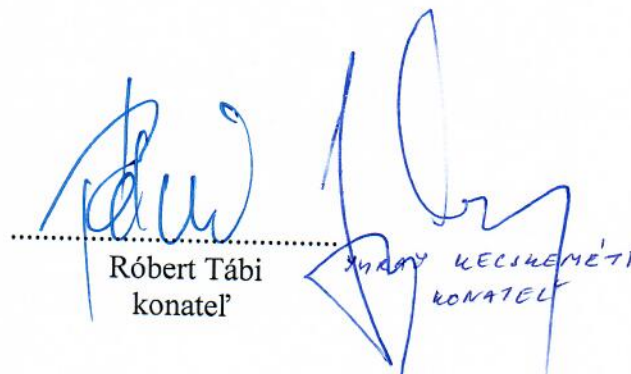 Róbert Tábi
konateľ
JURAJ KECSKEMÉTI
KONATEĽ